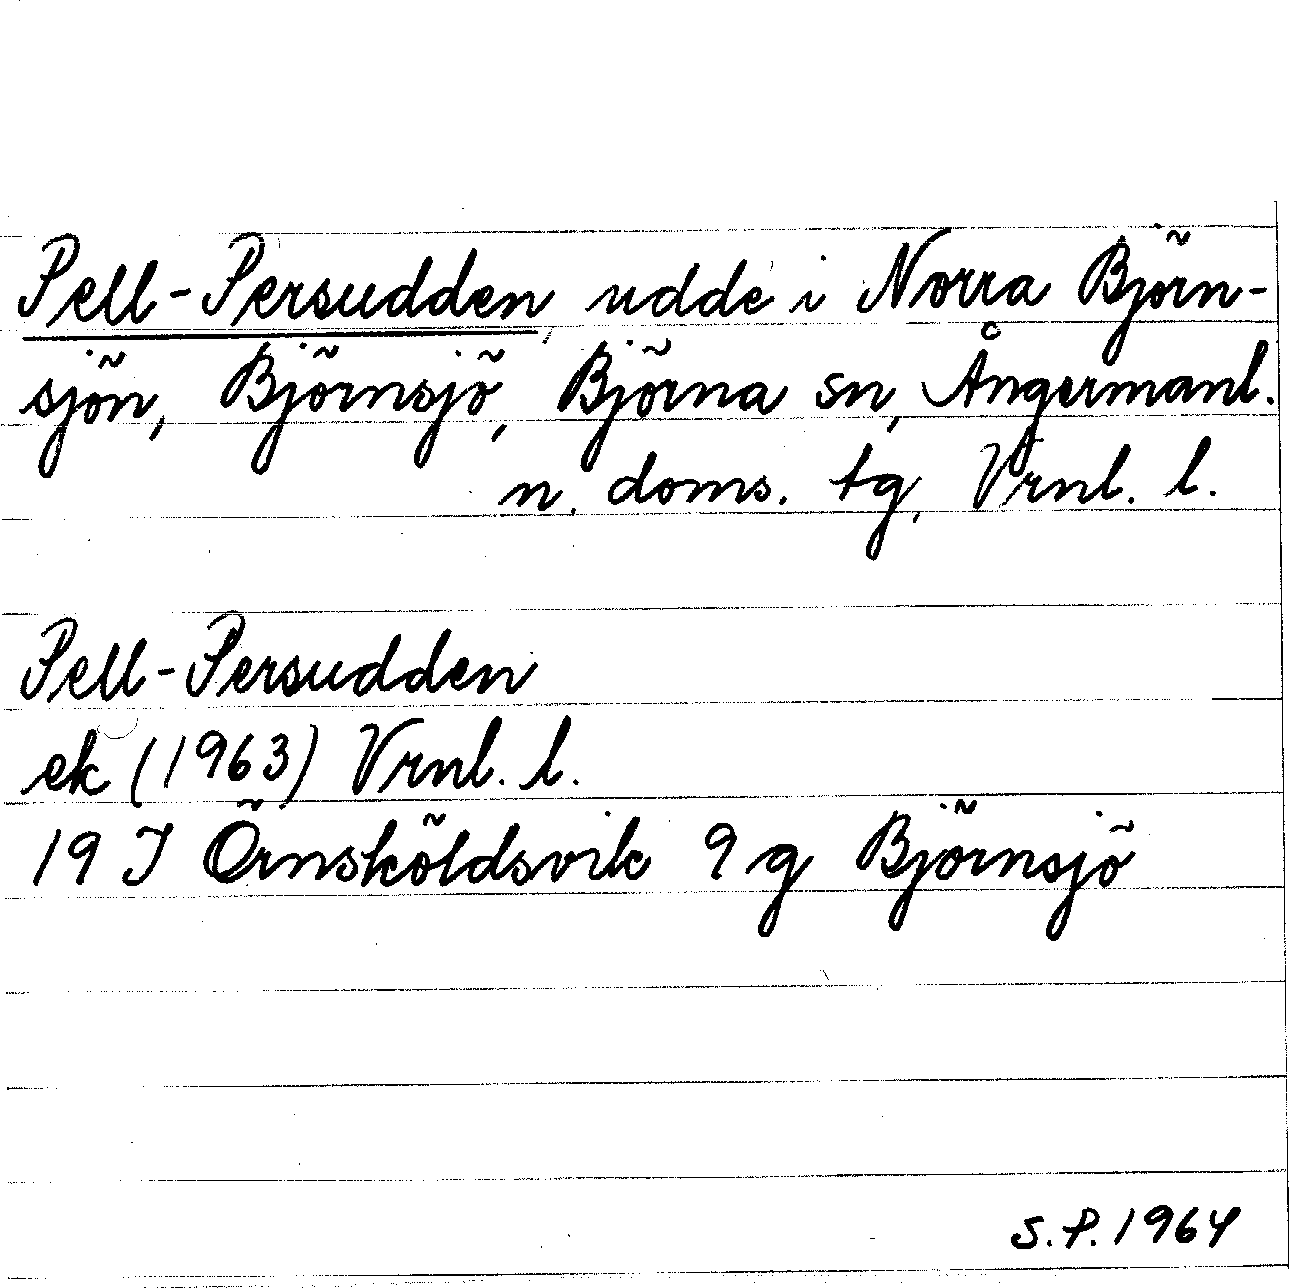 Pell-Persudden, udde i Norra Björn-
sjön, Björnsjö, Björna sn, Ångermanl.
n. doms. tg, Vrnl. l.
Pell-Persudden
ek (1963) Vrnl. l.
19 J Örnsköldsvik 9 g Björnsjö
S.P. 1964